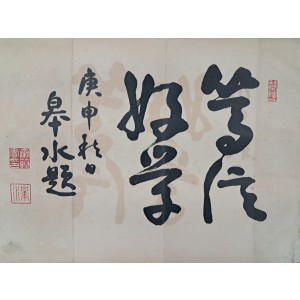 笃信
好学
庚申秋日
皋水题